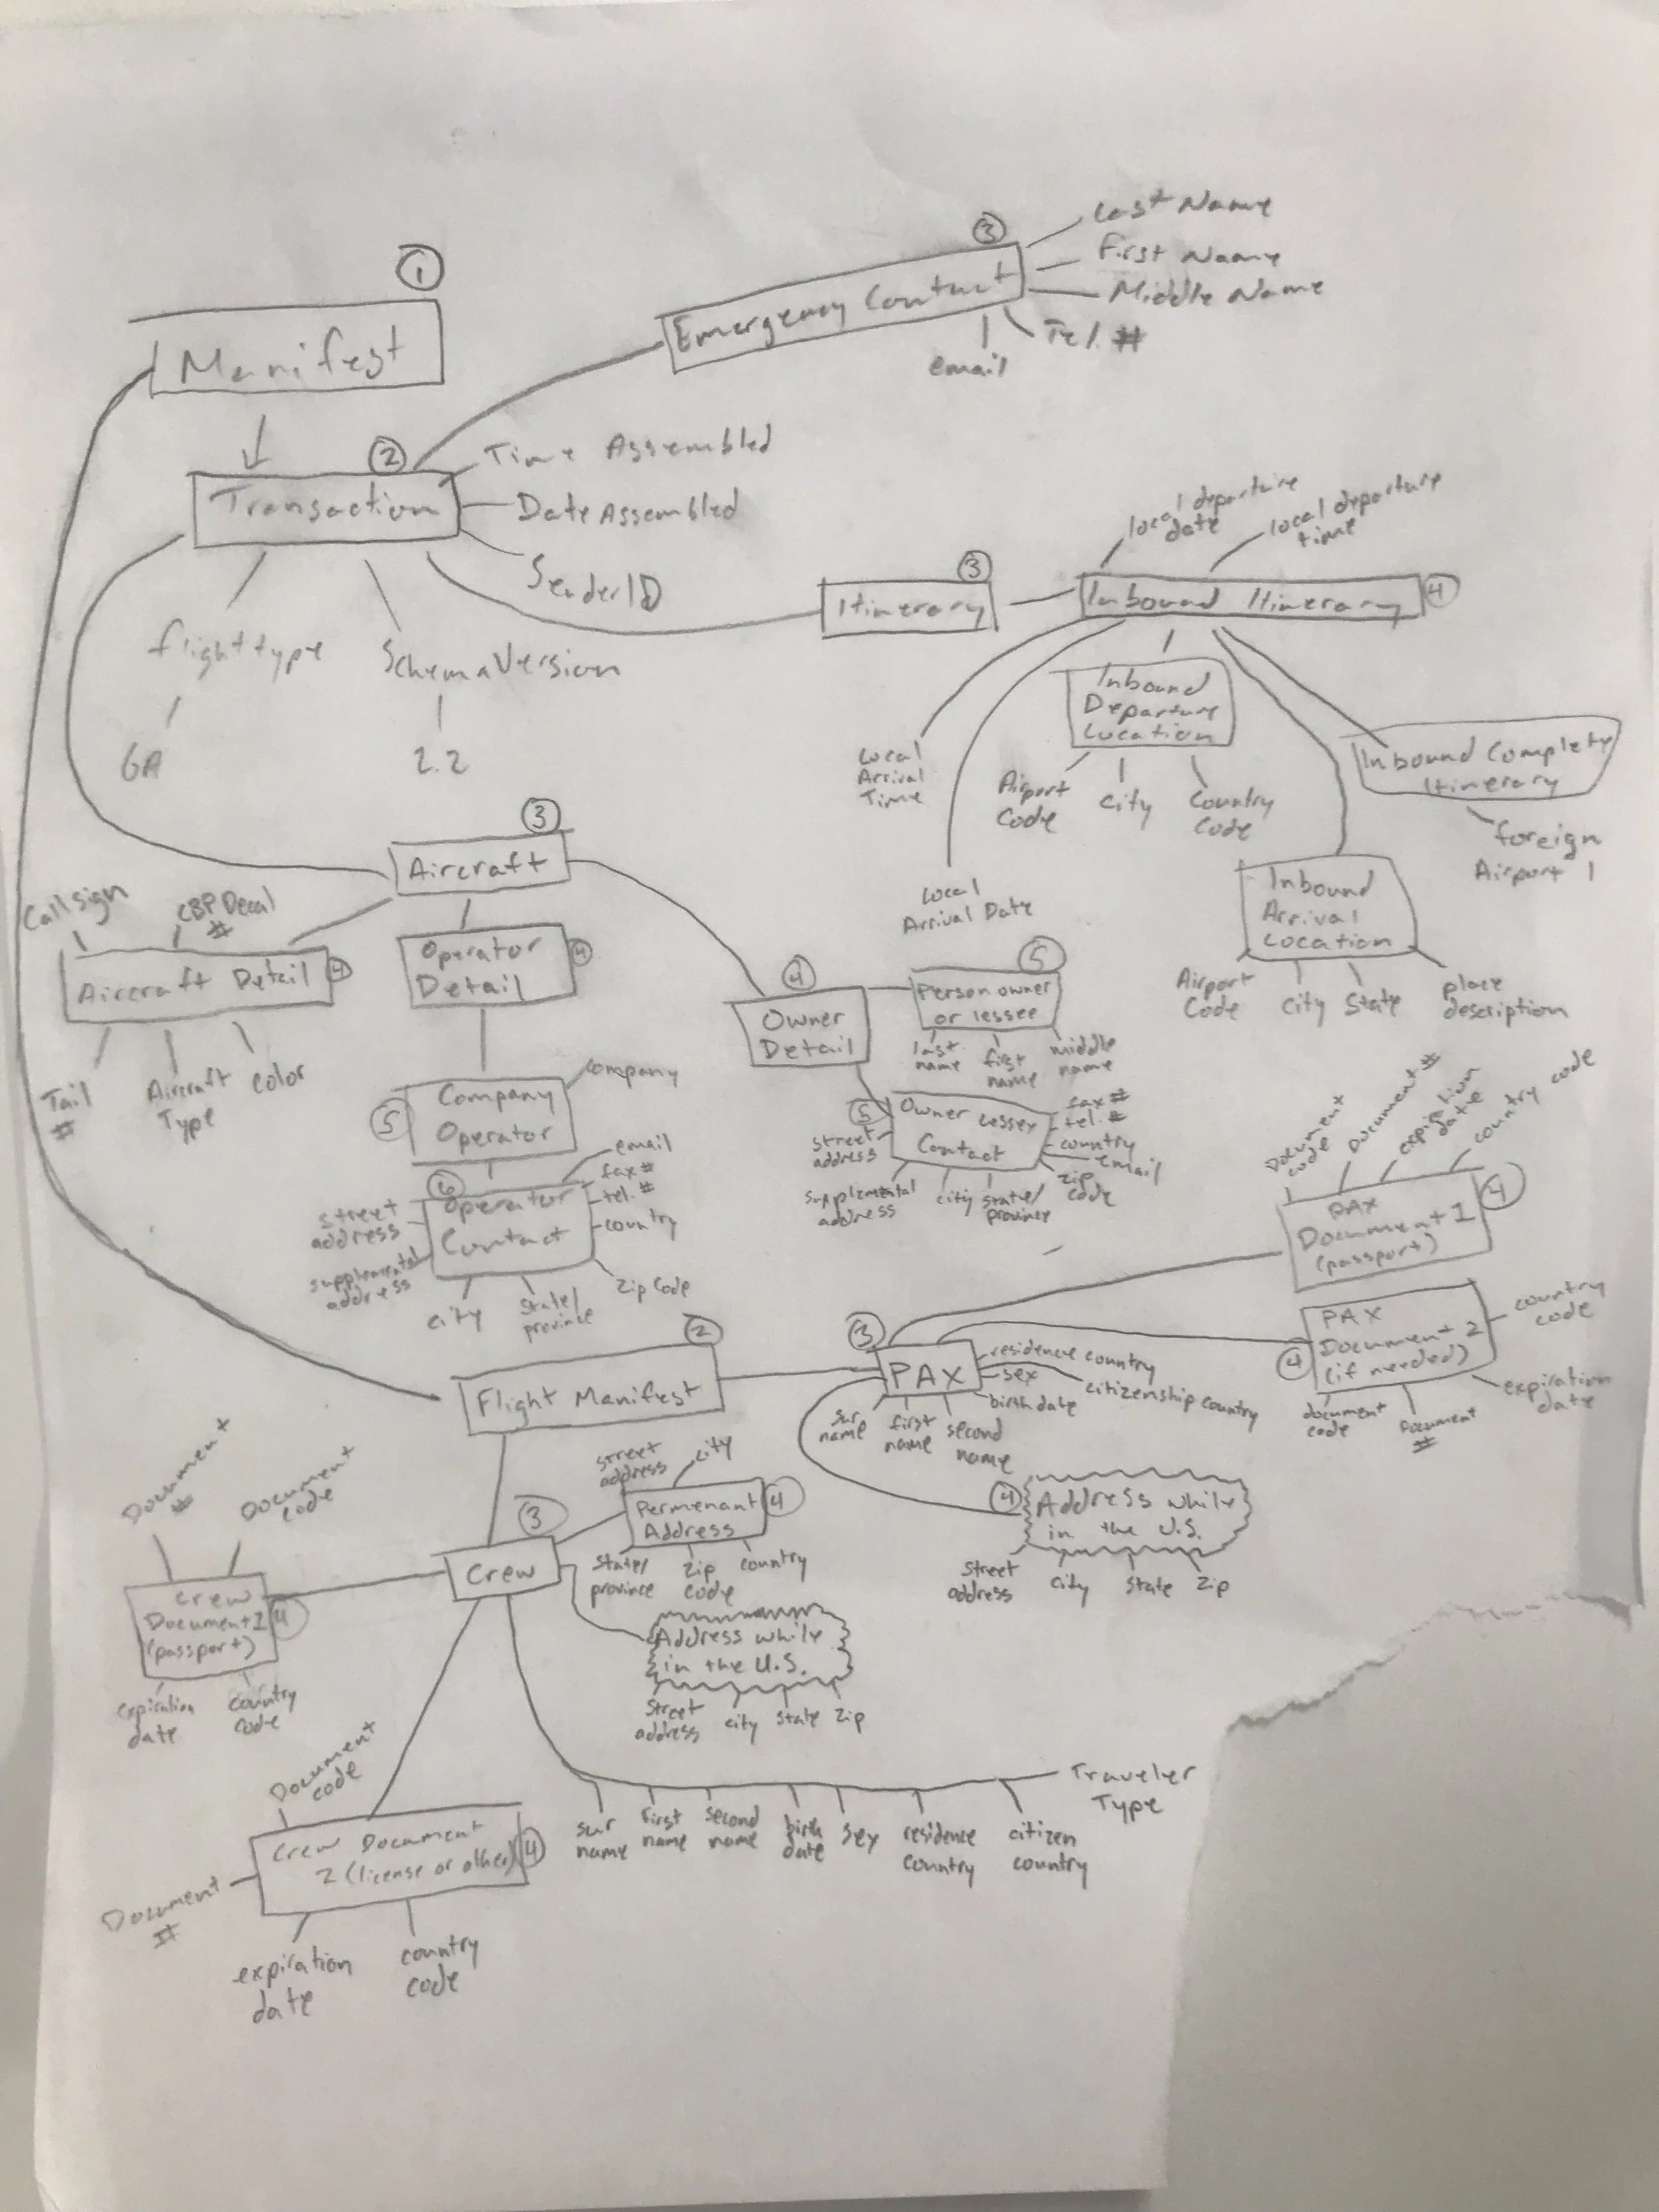 ①
Manifest
③
Emergency Contact
Last Name
First Name
Middle Name
Tel. #
email
②
Transaction
Time Assembled
Date Assembled
SenderID
flighttype
GA
SchemaVersion
2.2
③
Itinerary
local departure
date
local departure
time
Inbound Itinerary
④
Local
Arrival
Time
Local
Arrival Date
Inbound
Departure
Location
Airport
Code
City
Country
Code
Inbound Complete
Itinerary
foreign
Airport 1
Inbound
Arrival
Location
Airport
Code
City
State
place
description
③
Aircraft
Call sign
CBP Decal
#
Aircraft Detail
④
Tail
#
Aircraft
Type
Color
Operator
Detail
④
⑤
Company
Operator
Company
⑥
Operator
Contact
email
fax #
tel. #
country
Zip Code
street
address
supplemental
address
city
state/
province
④
Owner
Detail
⑤
Person owner
or lessee
last
name
first
name
middle
name
⑤
Owner Lessey
Contact
fax #
tel. #
country
email
zip
code
street
address
supplemental
address
city
state/
province
②
Flight Manifest
③
PAX
residence country
sex
citizenship country
birth date
sur
name
first
name
second
name
Document
code
Document #
expiration
date
country code
PAX
Document 1
(passport)
④
PAX
Document 2
(if needed)
④
country
code
expiration
date
document
code
Document
#
④
Address while
in the U.S.
street
address
city
state
zip
③
Crew
street
address
city
Permenant
Address
④
state/
province
zip
code
country
Address while
in the U.S.
street
address
city
state
zip
Document
#
Document
code
Crew
Document 1
(passport)
④
expiration
date
country
code
Document
code
Crew Document
2 (license or other)
④
Document
#
expiration
date
country
code
Traveler
Type
sur
name
first
name
second
name
birth
date
sex
residence
country
citizen
country